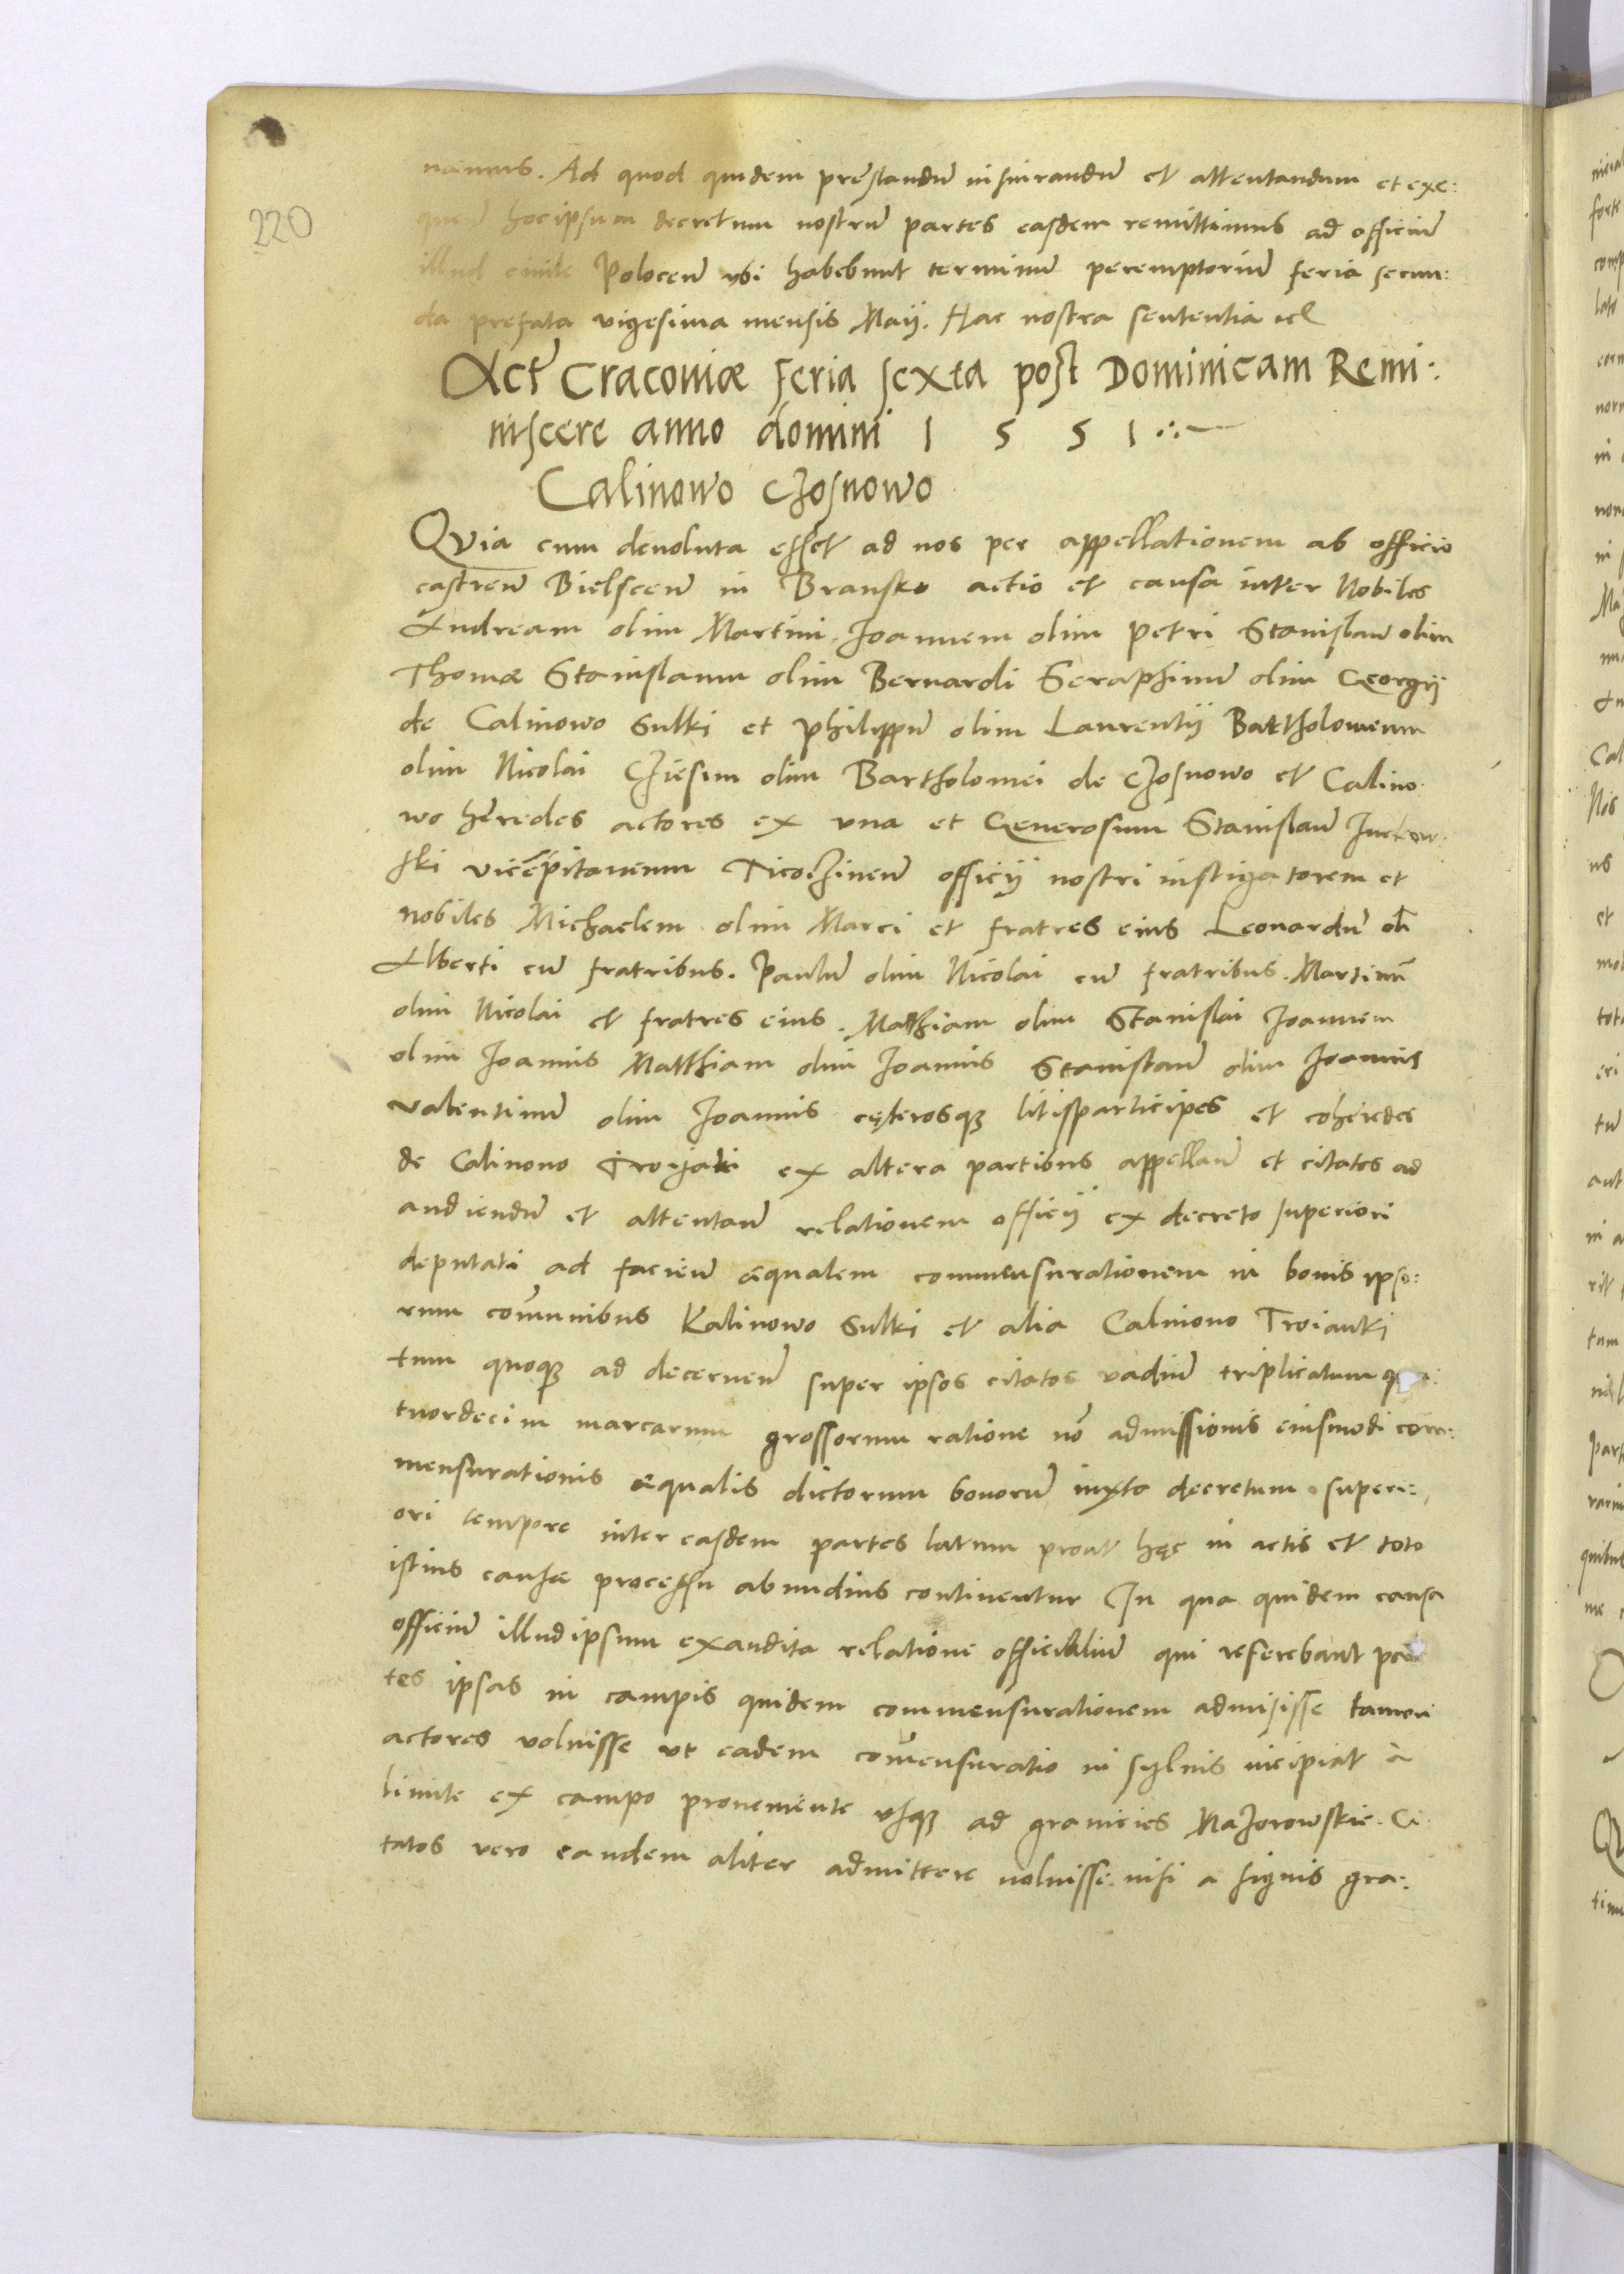 220
namus. Ad quod quidem prestandū iusiurandū et attentandum et exe:
quenū hoc ipsum decretum nostrū partes easdem remittimus ad officiū
illud ciuile Polocenū vbi habebunt terminū peremptoriū feria secun:
da prefata vigesima mensis Maij. Hac nostra sententia
Act̄ Cracoviæ feria sexta post Dominicam Remi:
niscere anno domini 1 5 5 1
Calinowo Czosnowo
Quia cum deuoluta esset ad nos per appellationem ab officio
castrenū Bielscenū in Bransko actio et causa inter Nobiles
Andream olim Martini, Joannem olim Petri Stanislaū olim
Thomæ Stanislaum olim Bernardi Seraphinū olim Georgij
de Calinowo Sulki et Philippū olim Laurentij Bartholomeum
olim Nicolai olim Bartholomei de Czosnowo et Calino
wo heredes actores ex vna et Generosum Stanislaū
ski vicecapitaneum Ticoczinenū officij nostri instigatorem et
nobiles Michaelem olim Marci et fratres eius Leonardū oli
Alberti cū fratribus. Paulū olim Nicolai cū fratribus. Martinū
olim Nicolai et fratres eius. Matthiam olim Stanislai Joannem
olim Joannis Matthiam olim Joannis Stanislaū olim Joannis
Valentinū olim Joannis cęterosq; litisparticipes et coheredes
de Calinouo ex altera partibus appellanū et citatos ad
audiendū et attentanū relationem officij ex decreto superiori
deputati ad facienū æqualem commensurationem in bonis ipso:
rum com̄unibus Kalinowo Sulki et alia Calinouo Troianki
tum quoq; ad decernenū super ipsos citatos vadiū triplicatum
tuordecim marcarum grossorum ratione nō admissionis eiusmodi com:
mensurationis æqualis dictorum bonorū iuxta decretum superi:
ori tempore inter easdem partes latum prout hęc in actis et toto
istius causæ processu abundius continentur In qua quidem causa
officiū illud ipsum exaudita relatione officialiū qui referebant par
tes ipsas in campis quidem commensurationem admisisse tamen
actores voluisse vt eadem com̄ensuratio in syluis incipiat à
limite ex campo proueniente vsq; ad granicies Mazorowskie. Ci:
tatos vero eandem aliter admittere noluisse. nisi a signis gra: